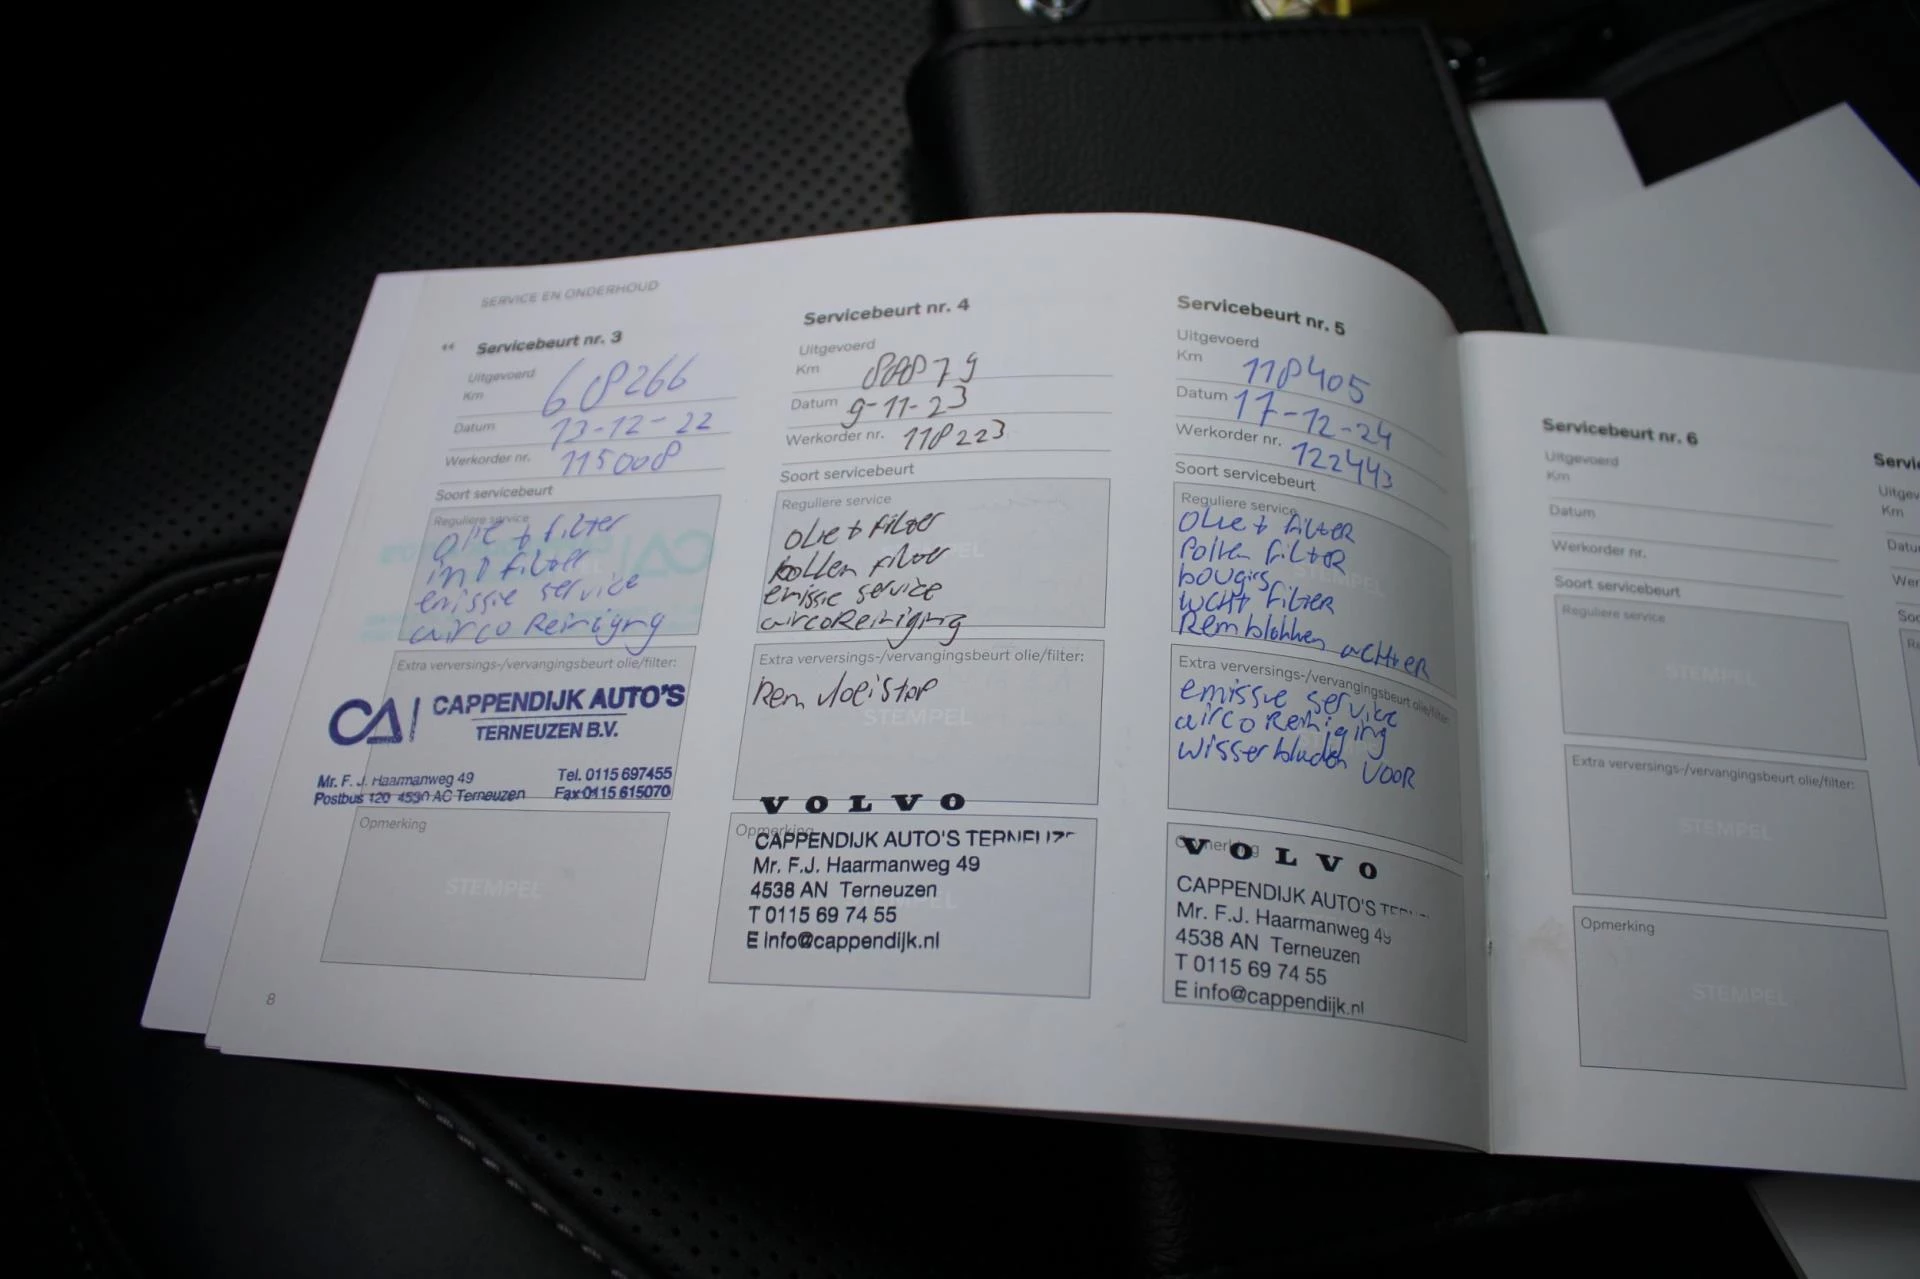 SERVICE EN ONDERHOUD
Servicebeurt nr. 3
Uitgevoerd
Km 68266
Datum 13-12-22
Werkorder nr. 115008
Soort servicebeurt
Reguliere service
olie + filter
int filter
emissie service
airco Reiniging
Extra verversings-/vervangingsbeurt olie/filter:
CA CAPPENDIJK AUTO'S
TERNEUZEN B.V.
Mr. F. J. Haarmanweg 49 Tel. 0115 697455
Postbus 120 4530 AC Terneuzen Fax 0115 615070
Opmerking
STEMPEL
8
Servicebeurt nr. 4
Uitgevoerd
Km 88879
Datum 9-11-23
Werkorder nr. 118223
Soort servicebeurt
Reguliere service
olie + filter
pollen filter
emissie service
airco Reiniging
Extra verversings-/vervangingsbeurt olie/filter:
Rem vloeistof
STEMPEL
VOLVO
Opmerking
CAPPENDIJK AUTO'S
Mr. F.J. Haarmanweg 49
4538 AN Terneuzen
T 0115 69 74 55
E info@cappendijk.nl
Servicebeurt nr. 5
Uitgevoerd
Km 118405
Datum 17-12-24
Werkorder nr. 122443
Soort servicebeurt
Reguliere service
olie + filter
Pollen filter
bougies
lucht filter
Remblokken achter
Extra verversings-/vervangingsbeurt olie/filter:
emissie service
airco Reiniging
wisserbladen voor
Opmerking
VOLVO
CAPPENDIJK AUTO'S
Mr. F.J. Haarmanweg 49
4538 AN Terneuzen
T 0115 69 74 55
E info@cappendijk.nl
Servicebeurt nr. 6
Uitgevoerd
Km
Datum
Werkorder nr.
Soort servicebeurt
Reguliere service
STEMPEL
Extra verversings-/vervangingsbeurt olie/filter:
STEMPEL
Opmerking
STEMPEL
Km